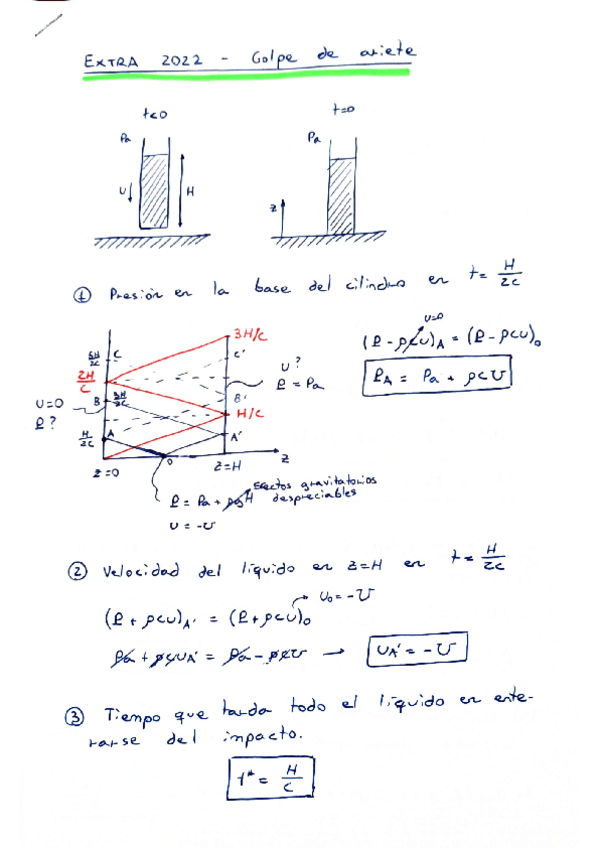 EXTRA 2022 - Golpe de ariete
t<0
t=0
Pa
Pa
U
H
z
① Presión en la base del cilindro en t= H/2C
3H/C
5H/2C
C
C'
2H/C
U?
P = Pa
B
3H/2C
B'
U=0
P?
H/C
H/2C
A
A'
z=0
0
z=H
z
P = Pa + ρgH
Efectos gravitatorios despreciables
U = -U
U=0
(P - ρCU)A = (P - ρCU)0
PA = Pa + ρCU
② Velocidad del líquido en z=H en t= H/2C
U0 = -U
(P + ρCU)A' = (P + ρCU)0
Pa + ρCUA' = Pa - ρCU → UA' = -U
③ Tiempo que tarda todo el líquido en ente-
rarse del impacto.
t* = H/C